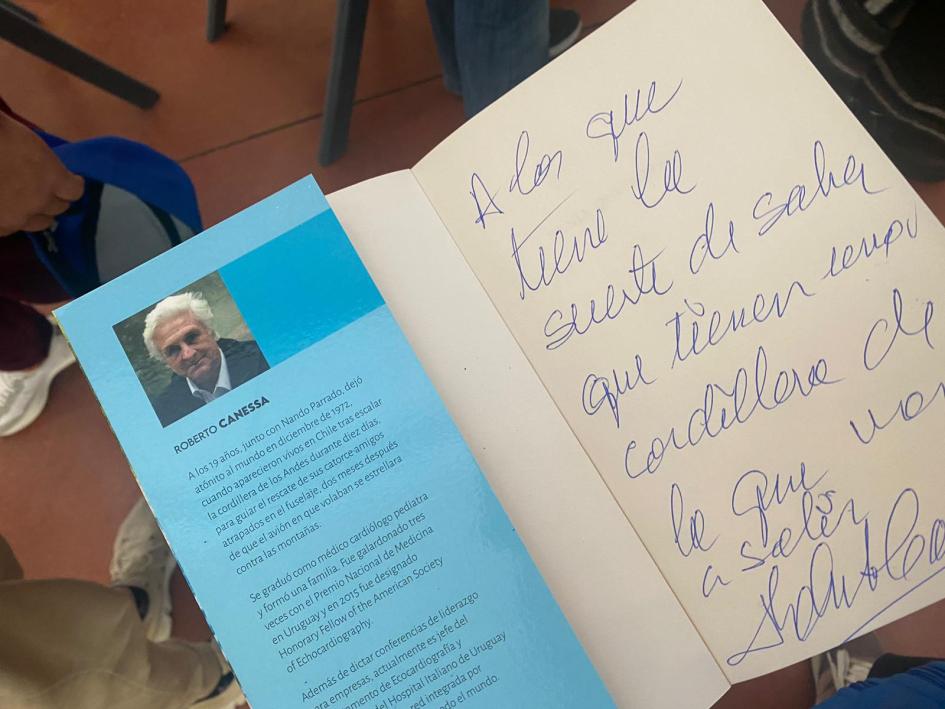 ROBERTO CANESSA
A los 19 años, junto con Nando Parrado, dejó
atónito al mundo en diciembre de 1972,
cuando aparecieron vivos en Chile tras escalar
la cordillera de los Andes durante diez días,
para guiar el rescate de sus catorce amigos
atrapados en el fuselaje, dos meses después
de que el avión en que volaban se estrellara
contra las montañas.
Se graduó como médico cardiólogo pediatra
y formó una familia. Fue galardonado tres
veces con el Premio Nacional de Medicina
en Uruguay y en 2015 fue designado
Honorary Fellow of the American Society
of Echocardiography.
Además de dictar conferencias de liderazgo
para empresas, actualmente es jefe del
mento de Ecocardiografía y
del Hospital Italiano de Uruguay
red integrada por
do el mundo.
A los que
tiene la
suerte de saber
que tienen
cordillera de
la que van
a salir